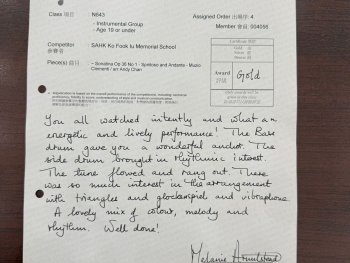 Class 項目 : N543
- Instrumental Group
- Age 19 or under
Assigned Order 出場序: 4
Member 會員: 004056
Competitor
參賽者
SAHK Ko Fook Iu Memorial School
Piece(s) :
- Sonatina Op 36 No 1 - Spiritoso and Andante - Muzio
Clementi / arr Andy Chan
Award
Gold
You all watched intently and what an
energetic and lively performance! The Bass
drum gave you a wonderful anchor. The
side drum brought in rhythmic interest.
The tune flowed and rang out. There
was so much interest in the arrangement
with triangles and glockenspiel and vibraphone.
A lovely mix of colour, melody and
rhythm. Well done!
Melanie Armitstead